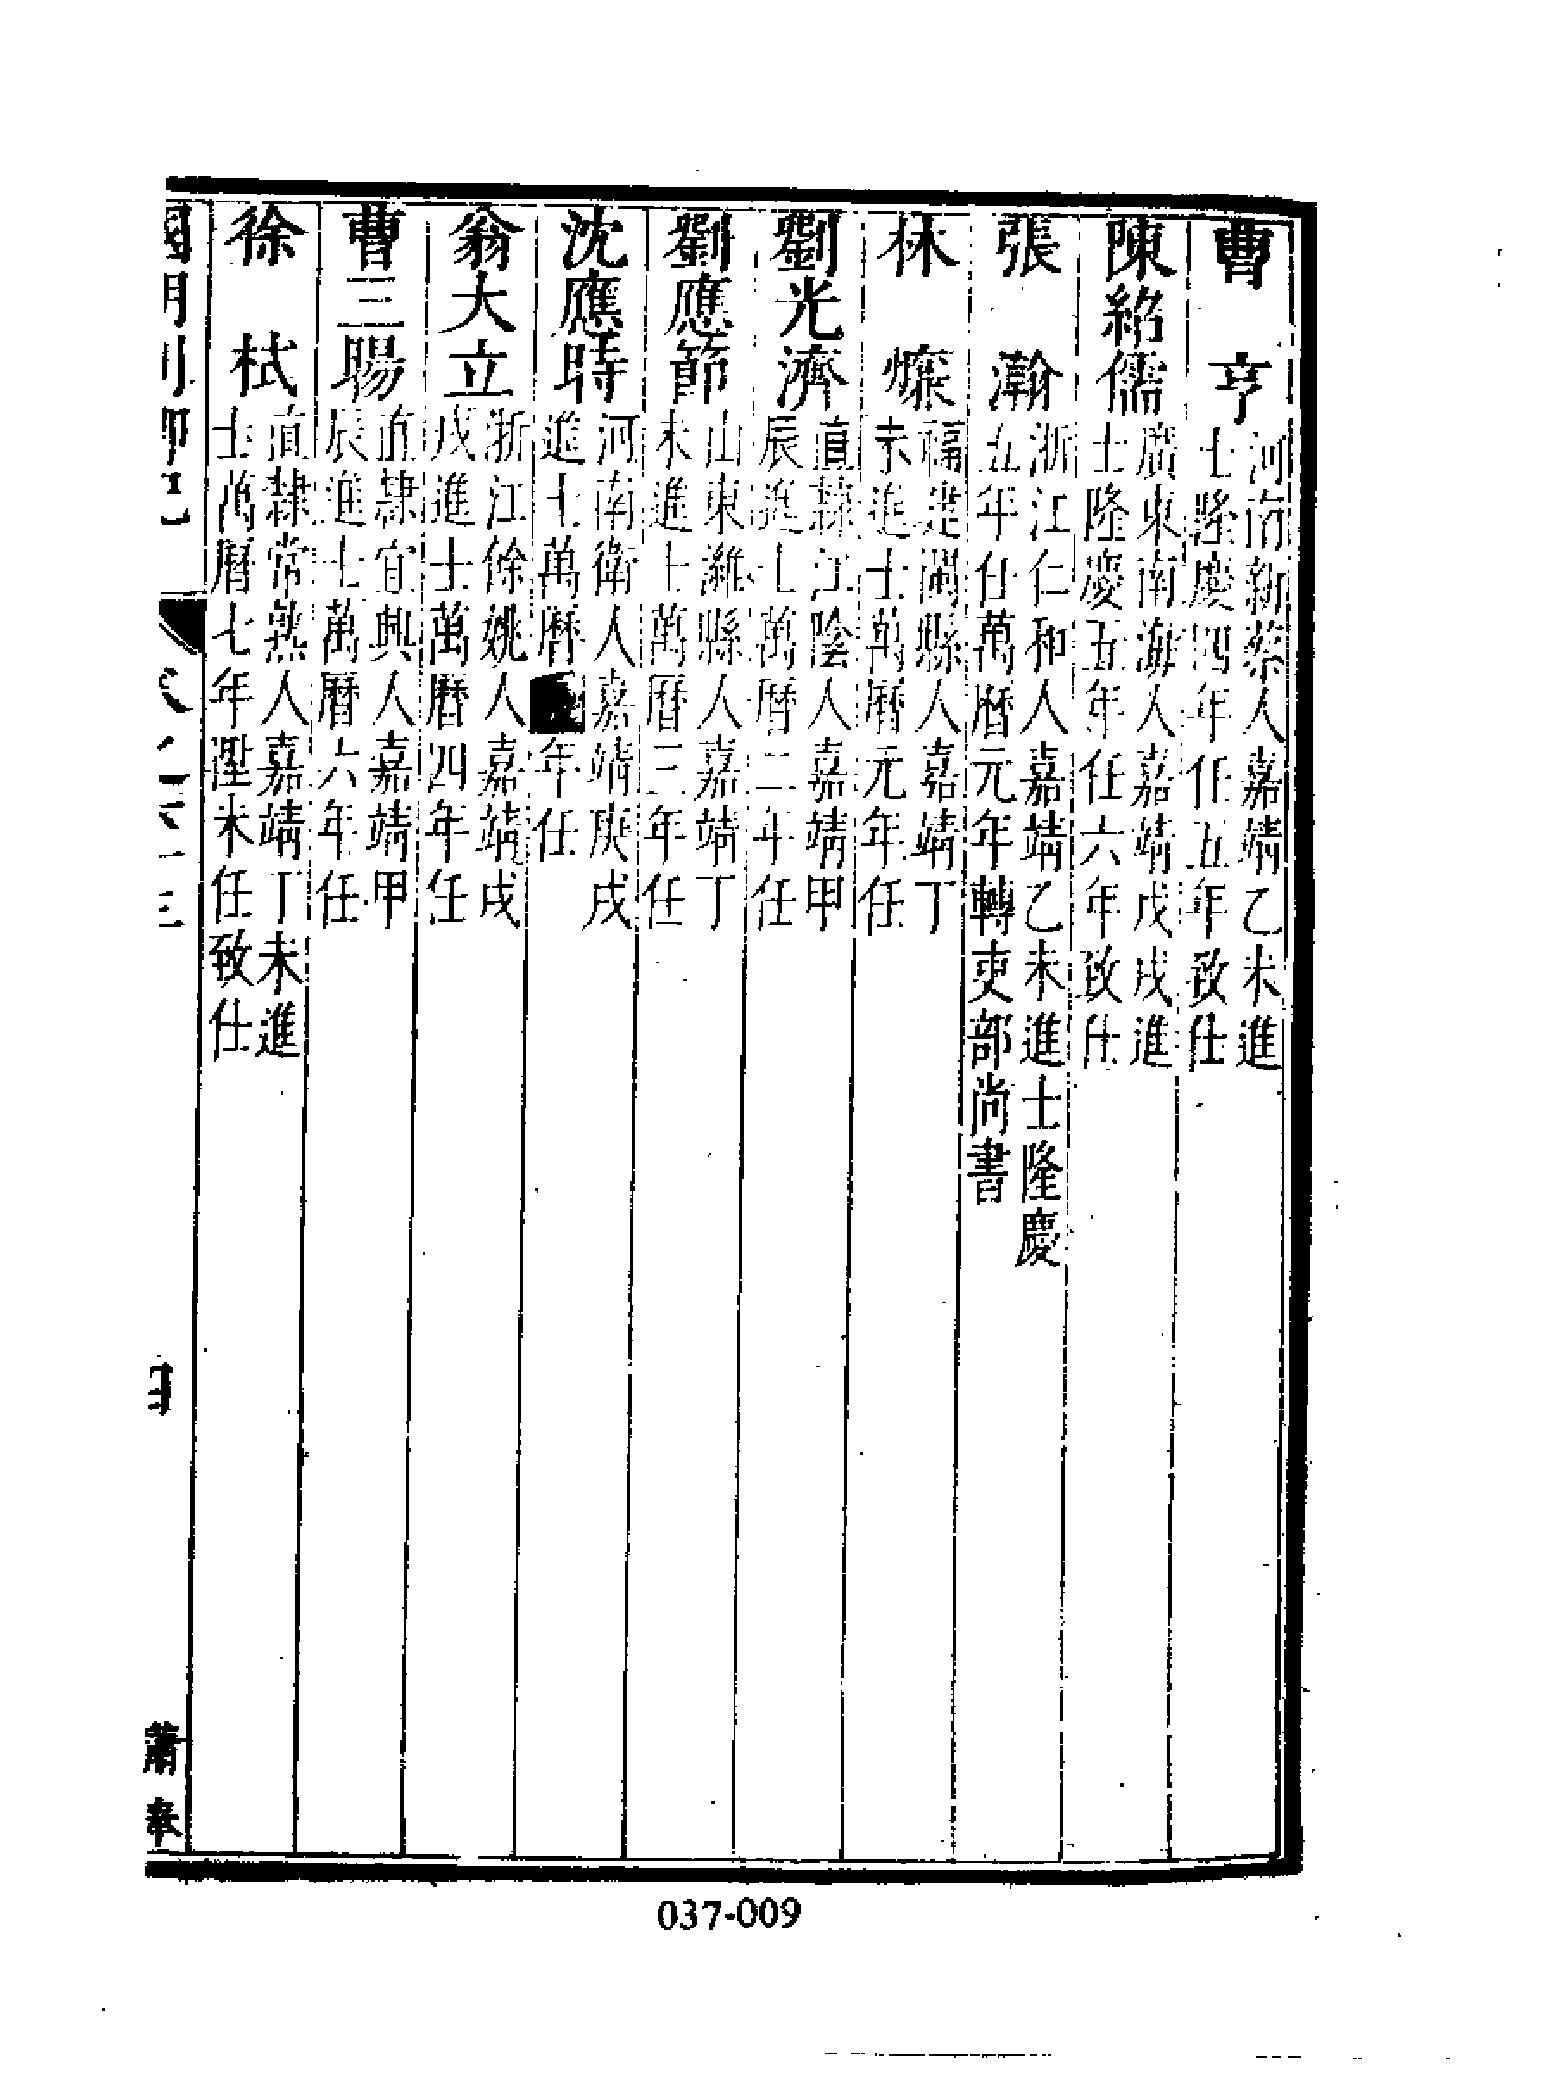 曹亨
河南新蔡人嘉靖乙未進
士隆慶四年任五年致仕
陳紹儒
廣東南海人嘉靖戊戌進
士隆慶五年任六年致仕
張瀚
浙江仁和人嘉靖乙未進士隆慶
五年任萬曆元年轉吏部尚書
林㷆
福建閩縣人嘉靖丁
未進士萬曆元年任
劉光濟
直隸江陰人嘉靖甲
辰進士萬曆二年任
劉應節
山東濰縣人嘉靖丁
未進士萬曆三年任
沈應時
河南衛人嘉靖庚戌
進士萬曆年任
翁大立
浙江餘姚人嘉靖戌
戌進士萬曆四年任
曹三暘
直隸宜興人嘉靖甲
辰進士萬曆六年任
徐栻
直隸常熟人嘉靖丁未進
士萬曆七年陞未任致仕
國朝列卿紀 卷之六十三
四
蕭奉
037-009